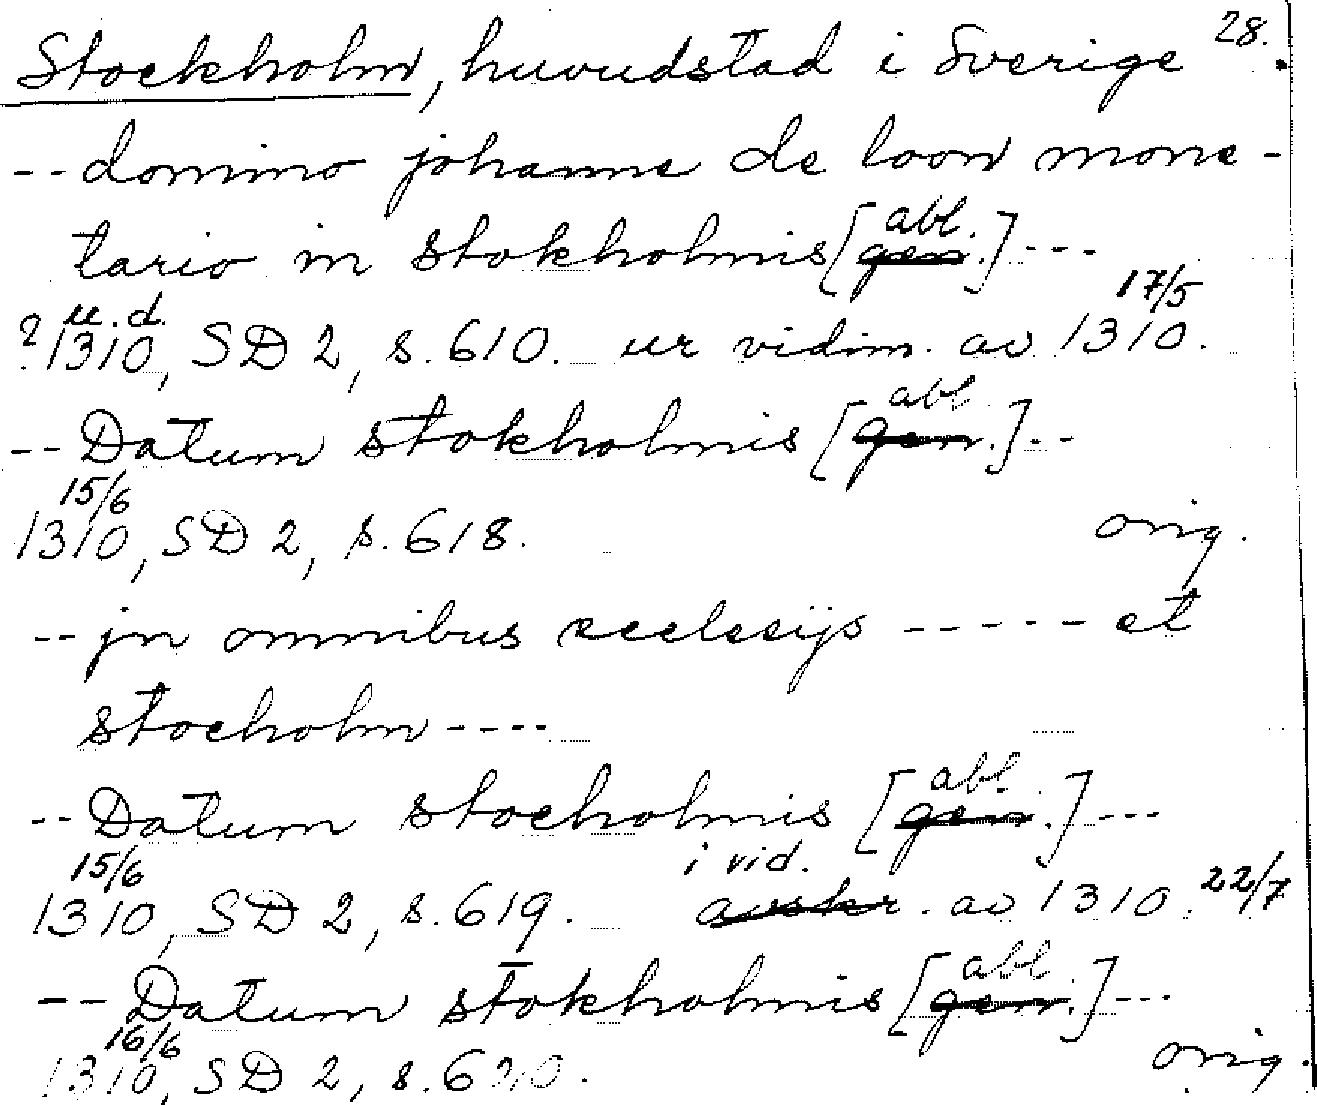 28.
Stockholm, huvudstad i Sverige
-- domino johanne de loon mone-
tario in stokholmis [gen. abl.] ---
? u.d. 1310, SD 2, s. 610. ur vidim. av 1310. 17/5
-- Datum stokholmis [gen. abl] --
15/6
1310, SD 2, s. 618. orig.
-- jn omnibus ecclesijs ----- et
stocholm ----
-- Datum stocholmis [gen. abl.] ---
15/6 i vid.
1310, SD 2, s. 619. avskr. av 1310. 22/7
-- Datum stokholmis [gen. abl] ---
16/6
1310, SD 2, s. 620. orig.